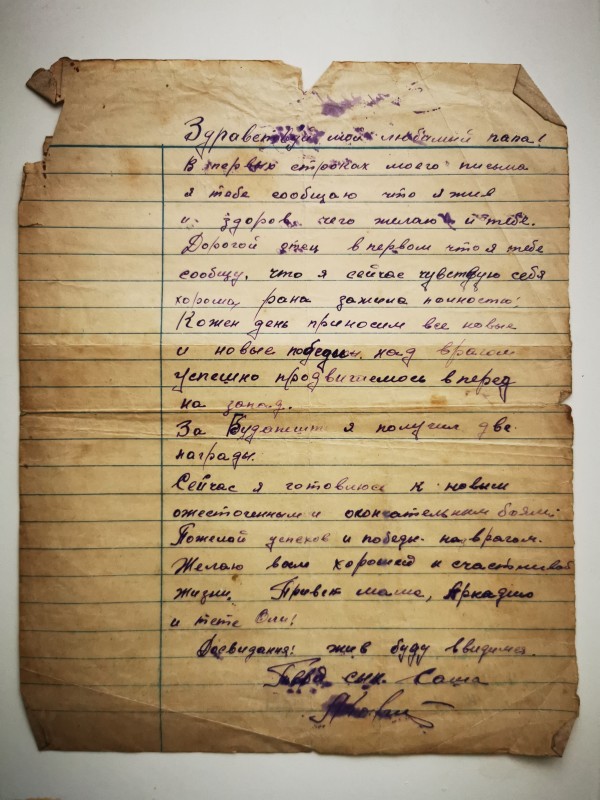 Здравствуй мой любимий папа!
В первых строках моего письма
я тебе сообщаю что я жив
и здоров чего желаю и тебе.
Дорогой отец в первом что я тебе
сообщу, что я сейчас чувствую себя
хорошо, рана зажила полностю.
Кожен день приносим все новые
и новые победы над врагом
успешно продвигаемось вперед
на запад.
За Будапешт я получил две
награды.
Сейчас я готовлюсь к новым
ожесточенным и окончательным боям.
Пожелай успехов и победы над врагом.
Желаю вам хорошей и счастливой
жизни. Привет мама, Аркадию
и тете Оли!
Досвидания! жив буду ввидимся.
Твой сын Саша